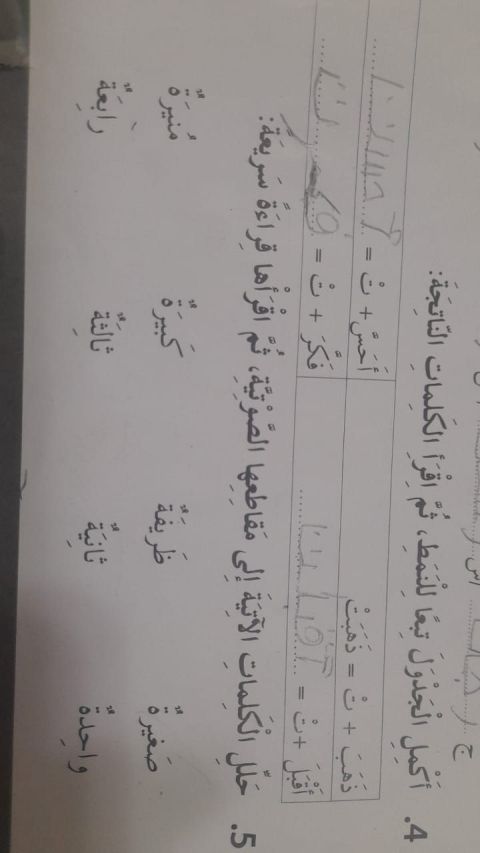 4. أَكْمِلِ الْجَدْوَلَ تَبَعًا لِلنَّمَطِ، ثُمَّ اقْرَأِ الكَلِماتِ النّاتِجَةَ:
ذَهَبَ + تْ = ذَهَبَتْ
أَحَسَّ + تْ =
أَقْبَلَ + تْ = أقبلت
فَكَّرَ + تْ =
5. حَلِّلِ الْكَلِماتِ الآتِيَةَ إِلى مَقاطِعِها الصَّوْتِيَّةِ، ثُمَّ اقْرَأْها قِراءَةً سَريعَةً:
صَغيرَةٌ ظَريفَةٌ كَبيرَةٌ مُنيرَةٌ
واحِدَةٌ ثانِيَةٌ ثالِثَةٌ رابِعَةٌ